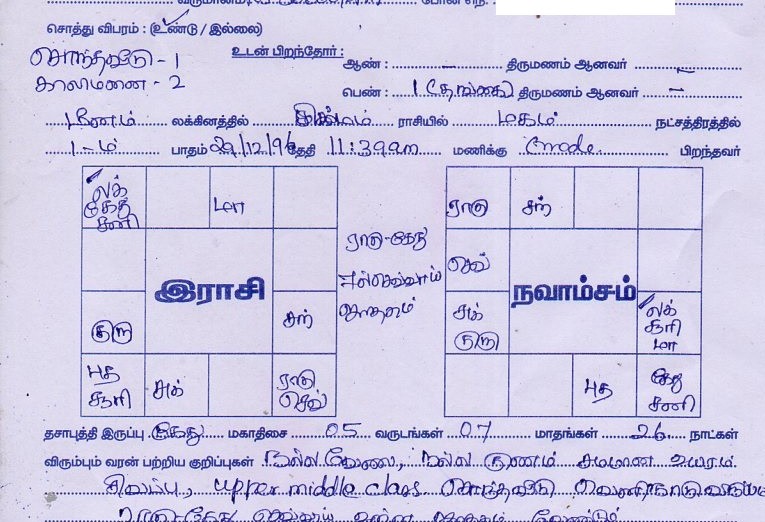 சொத்து விபரம் : (உண்டு / இல்லை)
சொந்தவீடு - 1
உடன் பிறந்தோர் :
காலிமனை - 2
ஆண் : - திருமணம் ஆனவர் -
பெண் : 1 (தங்கை) திருமணம் ஆனவர் -
மீனம் லக்கினத்தில் சிம்மம் ராசியில் மகம் நட்சத்திரத்தில்
1-ம் பாதம் 29/12/96 தேதி 11:39am மணிக்கு Erode பிறந்தவர்
லக் கேது சனி
மா
சந்
குரு
புத சூரி
சுக்
ராகு செவ்
இராசி
ராகு-கேது
செவ்வாய்
ஜாதகம்
ராகு
சந்
செவ்
சுக் குரு
லக் சூரி மா
புத
கேது சனி
நவாம்சம்
தசாபுத்தி இருப்பு கேது மகாதிசை 05 வருடங்கள் 07 மாதங்கள் 26 நாட்கள்
விரும்பும் வரன் பற்றிய குறிப்புகள் நல்ல வேலை, நல்ல குணம் சமமான உயரம்
சிவப்பு, upper middle class சொந்தவீடு